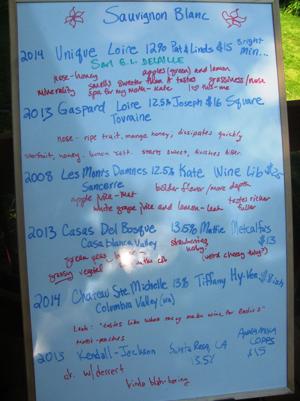 Sauvignon Blanc
2014 Unique Loire 12% Pat & Linds $15 Bright
min...
nose - honey apples (green) and lemon
minerality smells sweeter than it tastes grassiness/nose
spa for my mouth - Kate
2013 Gaspard Loire 12.5% Joseph $16 Square
Touraine
nose - ripe fruit, mango honey, dissipates quickly
starfruit, honey, lemon zest. starts sweet, finishes bitter.
2008 Les Monts Damnes 12.5% Kate Wine Lib $25
Sancerre bolder flavor/more depth
apple juice - Mat tastes richer
white grape juice and lemon - Leah fuller
2013 Casas Del Bosque 13.5% Mattie Metcalfe's
Casablanca Valley strawberries $13
green peas
grassy (weird cheesy thing?)
2014 Chateau Ste. Michelle 13% Tiffany Hy-Vee $8ish
Columbia Valley (WA)
Leah: "tastes like what they make wine for ladies"
Mattie - peaches
2013 Kendall-Jackson Santa Rosa, CA
13.5% $15
dr. w/ dessert
kinda blah-boring